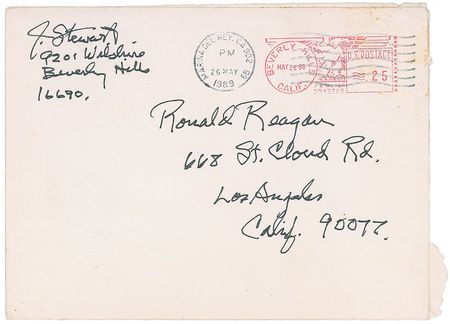 J. Stewart
9201 Wilshire
Beverly Hills
MARINA DEL REY, CA 902
PM
26 MAY
1989
BEVERLY HILLS
MAY 26'89
CALIF.
U.S. POSTAGE
.25
Ronald Reagan
668 St. Cloud Rd.
Los Angeles
Calif. 90077.